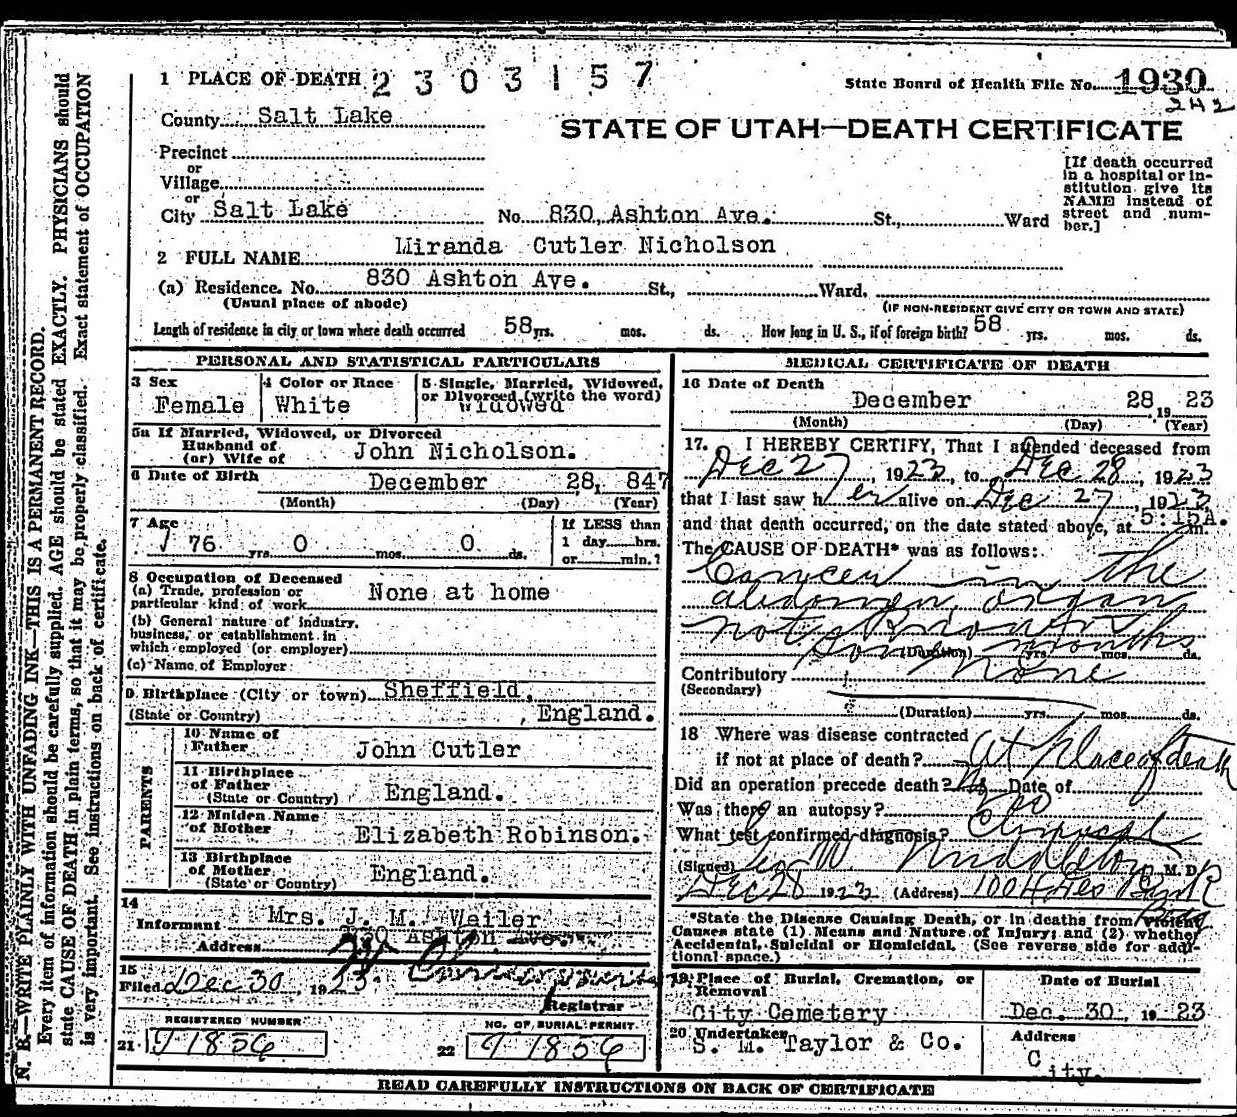 1 PLACE OF DEATH 2303157
State Board of Health File No. 1930
242
County Salt Lake
STATE OF UTAH—DEATH CERTIFICATE
Precinct
or
Village
or
City Salt Lake No. 830 Ashton Ave. St., Ward
[If death occurred
in a hospital or in-
stitution give its
NAME instead of
street and num-
ber.]
2 FULL NAME Miranda Cutler Nicholson
(a) Residence. No. 830 Ashton Ave. St., Ward.
(Usual place of abode) (IF NON-RESIDENT GIVE CITY OR TOWN AND STATE)
Length of residence in city or town where death occurred 58 yrs. mos. ds. How long in U. S., if of foreign birth? 58 yrs. mos. ds.
PERSONAL AND STATISTICAL PARTICULARS
3 Sex
Female
4 Color or Race
White
5 Single, Married, Widowed,
or Divorced (write the word)
Widowed
5a If Married, Widowed, or Divorced
Husband of
(or) Wife of John Nicholson.
6 Date of Birth December 28, 847
(Month) (Day) (Year)
7 Age
76 yrs. 0 mos. 0 ds.
If LESS than
1 day hrs.
or min.?
8 Occupation of Deceased
(a) Trade, profession or
particular kind of work None at home
(b) General nature of industry,
business, or establishment in
which employed (or employer)
(c) Name of Employer
9 Birthplace (City or town) Sheffield,
(State or Country) , England.
PARENTS
10 Name of
Father John Cutler
11 Birthplace
of Father
(State or Country) England.
12 Maiden Name
of Mother Elizabeth Robinson.
13 Birthplace
of Mother
(State or Country) England.
14
Informant Mrs. J. M. Weiler
Address 830 Ashton Ave.
15
Filed Dec 30, 1923
Registrar
REGISTERED NUMBER
21 J 1856
NO. OF BURIAL PERMIT
22 J 1856
MEDICAL CERTIFICATE OF DEATH
16 Date of Death
December 28 1923
(Month) (Day) (Year)
17. I HEREBY CERTIFY, That I attended deceased from
Dec 27, 1923, to Dec 28, 1923
that I last saw her alive on Dec 27, 1923
and that death occurred, on the date stated above, at 5:15A.m.
The CAUSE OF DEATH* was as follows:
Cancer in the
abdomen, organ
not known
some months
(Duration) yrs. mos. ds.
Contributory None
(Secondary)
(Duration) yrs. mos. ds.
18 Where was disease contracted
if not at place of death? At place of death
Did an operation precede death? No Date of
Was there an autopsy? No
What test confirmed diagnosis? Clinical
(Signed) Geo W. Middleton, M. D.
Dec 28 1923 (Address) 1004 Deseret Bank
Bldg
*State the Disease Causing Death, or in deaths from Violent
Causes state (1) Means and Nature of Injury; and (2) whether
Accidental, Suicidal or Homicidal. (See reverse side for addi-
tional space.)
19 Place of Burial, Cremation, or
Removal
City Cemetery
Date of Burial
Dec. 30, 1923
20 Undertaker
S. M. Taylor & Co.
Address
City.
READ CAREFULLY INSTRUCTIONS ON BACK OF CERTIFICATE
N. B.—WRITE PLAINLY WITH UNFADING INK—THIS IS A PERMANENT RECORD.
Every item of information should be carefully supplied. AGE should be stated EXACTLY. PHYSICIANS should
state CAUSE OF DEATH in plain terms, so that it may be properly classified. Exact statement of OCCUPATION
is very important. See instructions on back of certificate.